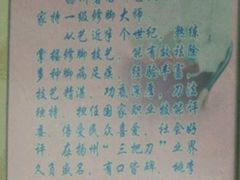 家特一级修脚大师
从艺近半个世纪，熟练
掌握修脚技艺，能有效祛除
多种脚病足疾，经验丰富，
技艺精湛，功底深厚，刀法
独特。担任国家职业技能评
委，倍受民众喜爱，社会好
评，在扬州“三把刀”业界
久负盛名，有口皆碑，桃李